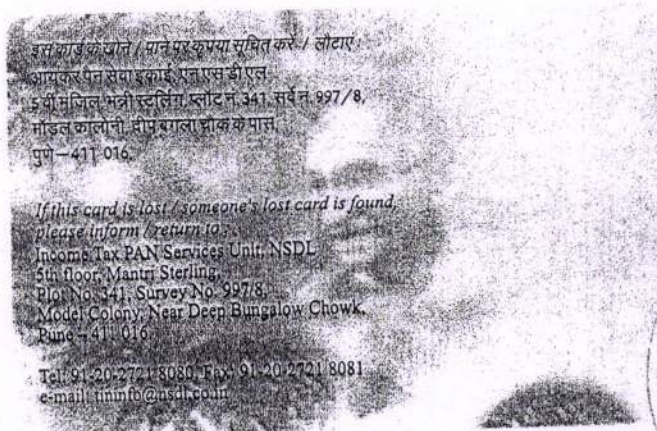 इस कार्ड के खोने / पाने पर कृपया सूचित करें / लौटाएं :
आयकर पैन सेवा इकाई, एन एस डी एल
5 वी मंजिल, मंत्री स्टर्लिंग, प्लॉट नं. 341, सर्वे नं. 997/8,
मॉडल कालोनी, दीप बंगला चौक के पास,
पुणे – 411 016.
If this card is lost / someone's lost card is found,
please inform / return to :
Income Tax PAN Services Unit, NSDL
5th floor, Mantri Sterling,
Plot No. 341, Survey No. 997/8,
Model Colony, Near Deep Bungalow Chowk,
Pune - 411 016.
Tel: 91-20-2721 8080, Fax: 91-20-2721 8081
e-mail: tininfo@nsdl.co.in